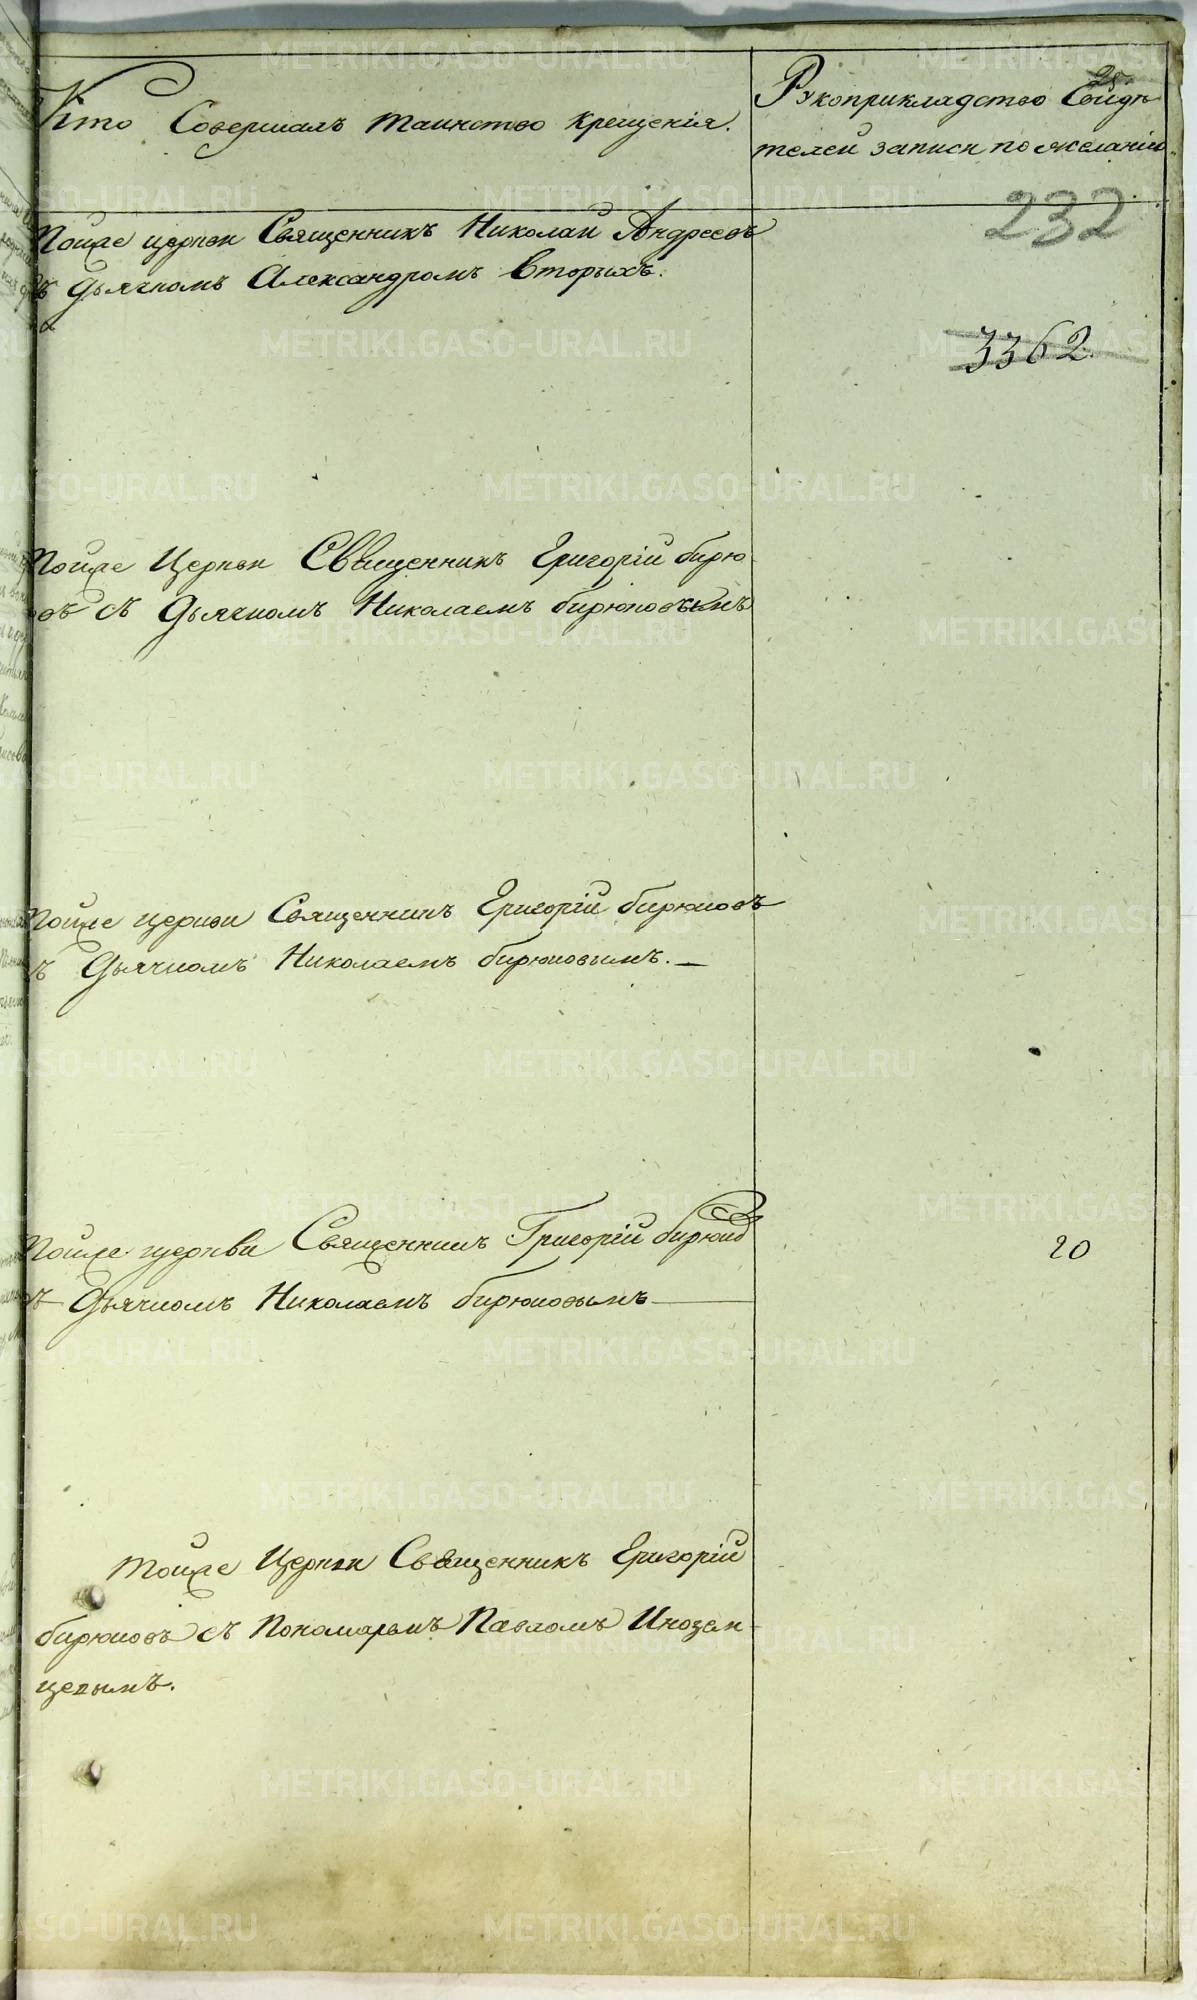 Кто Совершалъ таинство крещенiя.
Рукоприкладство Свидѣ
телей записи по желанiю
232
Тойже церкви Священникъ Николай Андреевъ
съ дьячкомъ Александромъ Вторыхъ.
3362.
Тойже Церкви Священникъ Григорiй бирю
овъ съ Дьячкомъ Николаемъ бирюковымъ
Тойже церкви Священникъ Григорiй бирюковъ
съ Дьячкомъ Николаемъ бирюковымъ. —
Тойже церкви Священникъ Григорiй бирюков
съ Дьячкомъ Николаемъ бирюковымъ —
20
тойже Церкви Священникъ Григорiй
бирюковъ съ Пономаремъ Павломъ Инозем
цевымъ.
METRIKI.GASO-URAL.RU